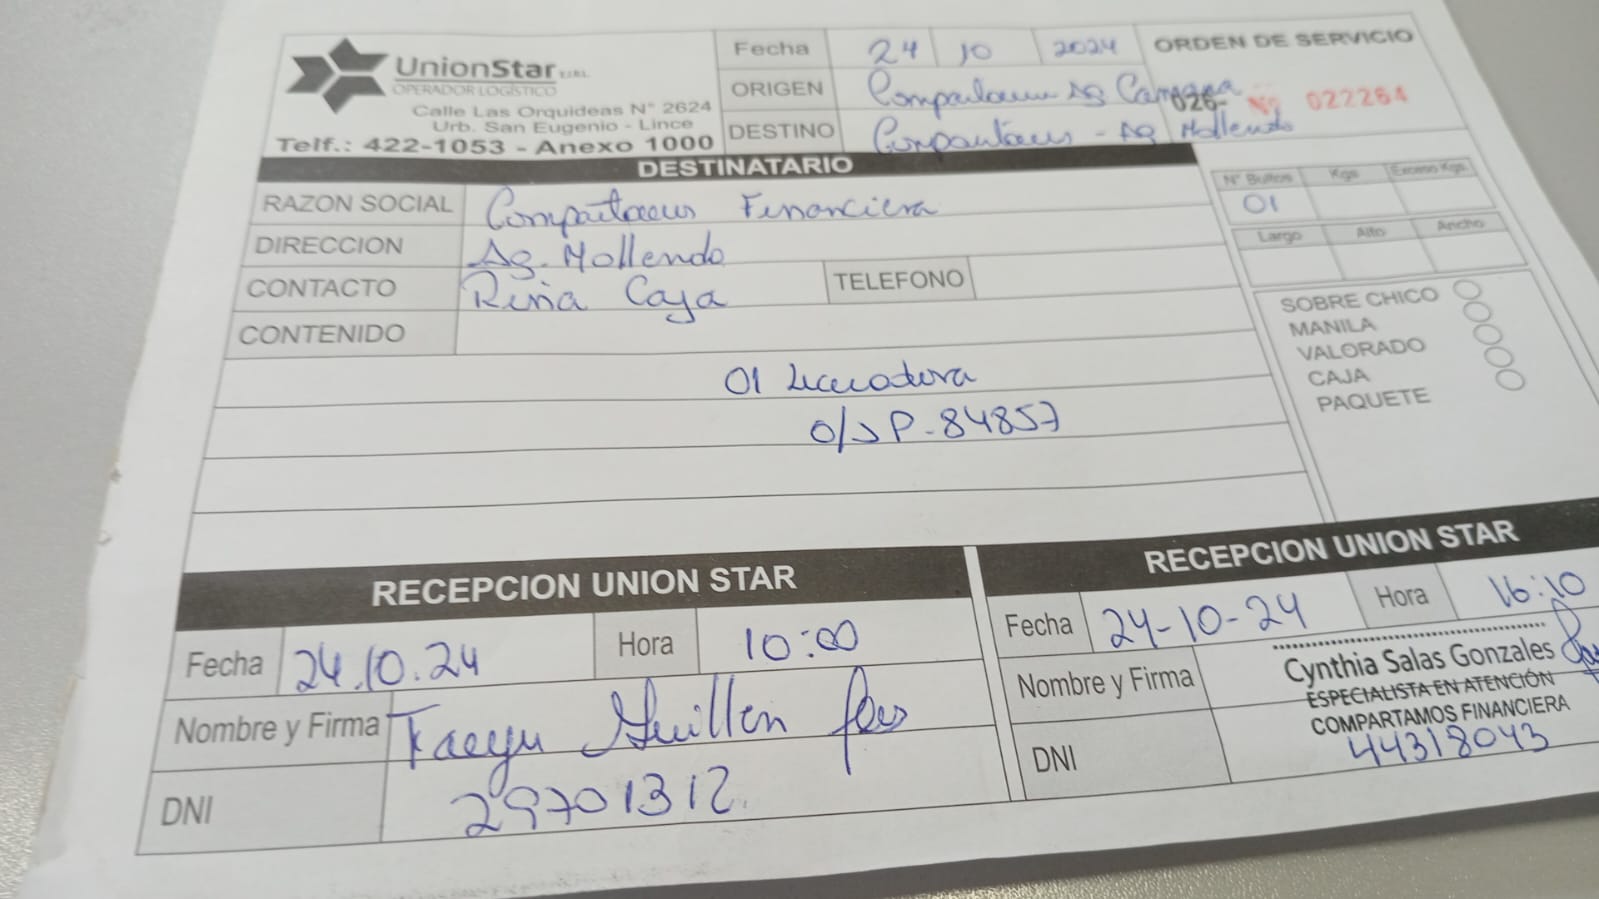 UnionStar E.I.R.L.
OPERADOR LOGÍSTICO
Calle Las Orquideas N° 2624
Urb. San Eugenio - Lince
Telf.: 422-1053 - Anexo 1000
Fecha 24 10 2024
ORIGEN Compartamos Ag Camana
DESTINO Compartamos - Ag Mollendo
ORDEN DE SERVICIO
026- Nº 022264
DESTINATARIO
RAZON SOCIAL Compartamos Financiera
DIRECCION Ag. Mollendo
CONTACTO Rina Caja TELEFONO
CONTENIDO
01 Licuadora
O/S P-84857
N° Bultos Kgs Exceso Kgs.
01
Largo Alto Ancho
SOBRE CHICO
MANILA
VALORADO
CAJA
PAQUETE
RECEPCION UNION STAR
Fecha 24.10.24 Hora 10:00
Nombre y Firma Guillen
DNI 29701312
RECEPCION UNION STAR
Fecha 24-10-24 Hora 16:10
Nombre y Firma Cynthia Salas Gonzales
ESPECIALISTA EN ATENCIÓN
COMPARTAMOS FINANCIERA
DNI 44318043